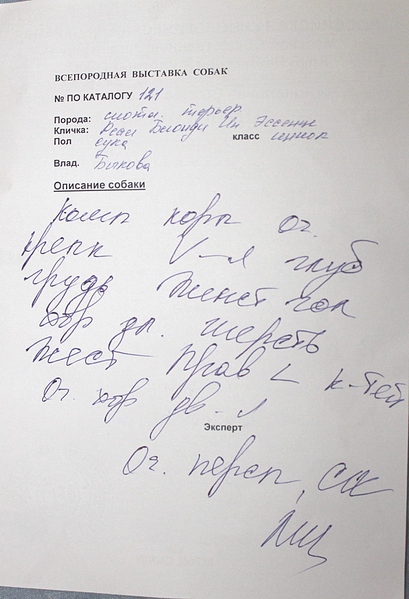 ВСЕПОРОДНАЯ ВЫСТАВКА СОБАК
№ ПО КАТАЛОГУ 121
Порода: скотч. терьер
Кличка: Блонди Ин Эссенше
Пол сука класс щенок
Влад. Быкова
Описание собаки
комп корп Оч.
крепк V-я глуб
грудь женст гол
хор дл. шерсть
жест прав L к-тей
Оч. хор дв-я
Эксперт
Оч. персп,